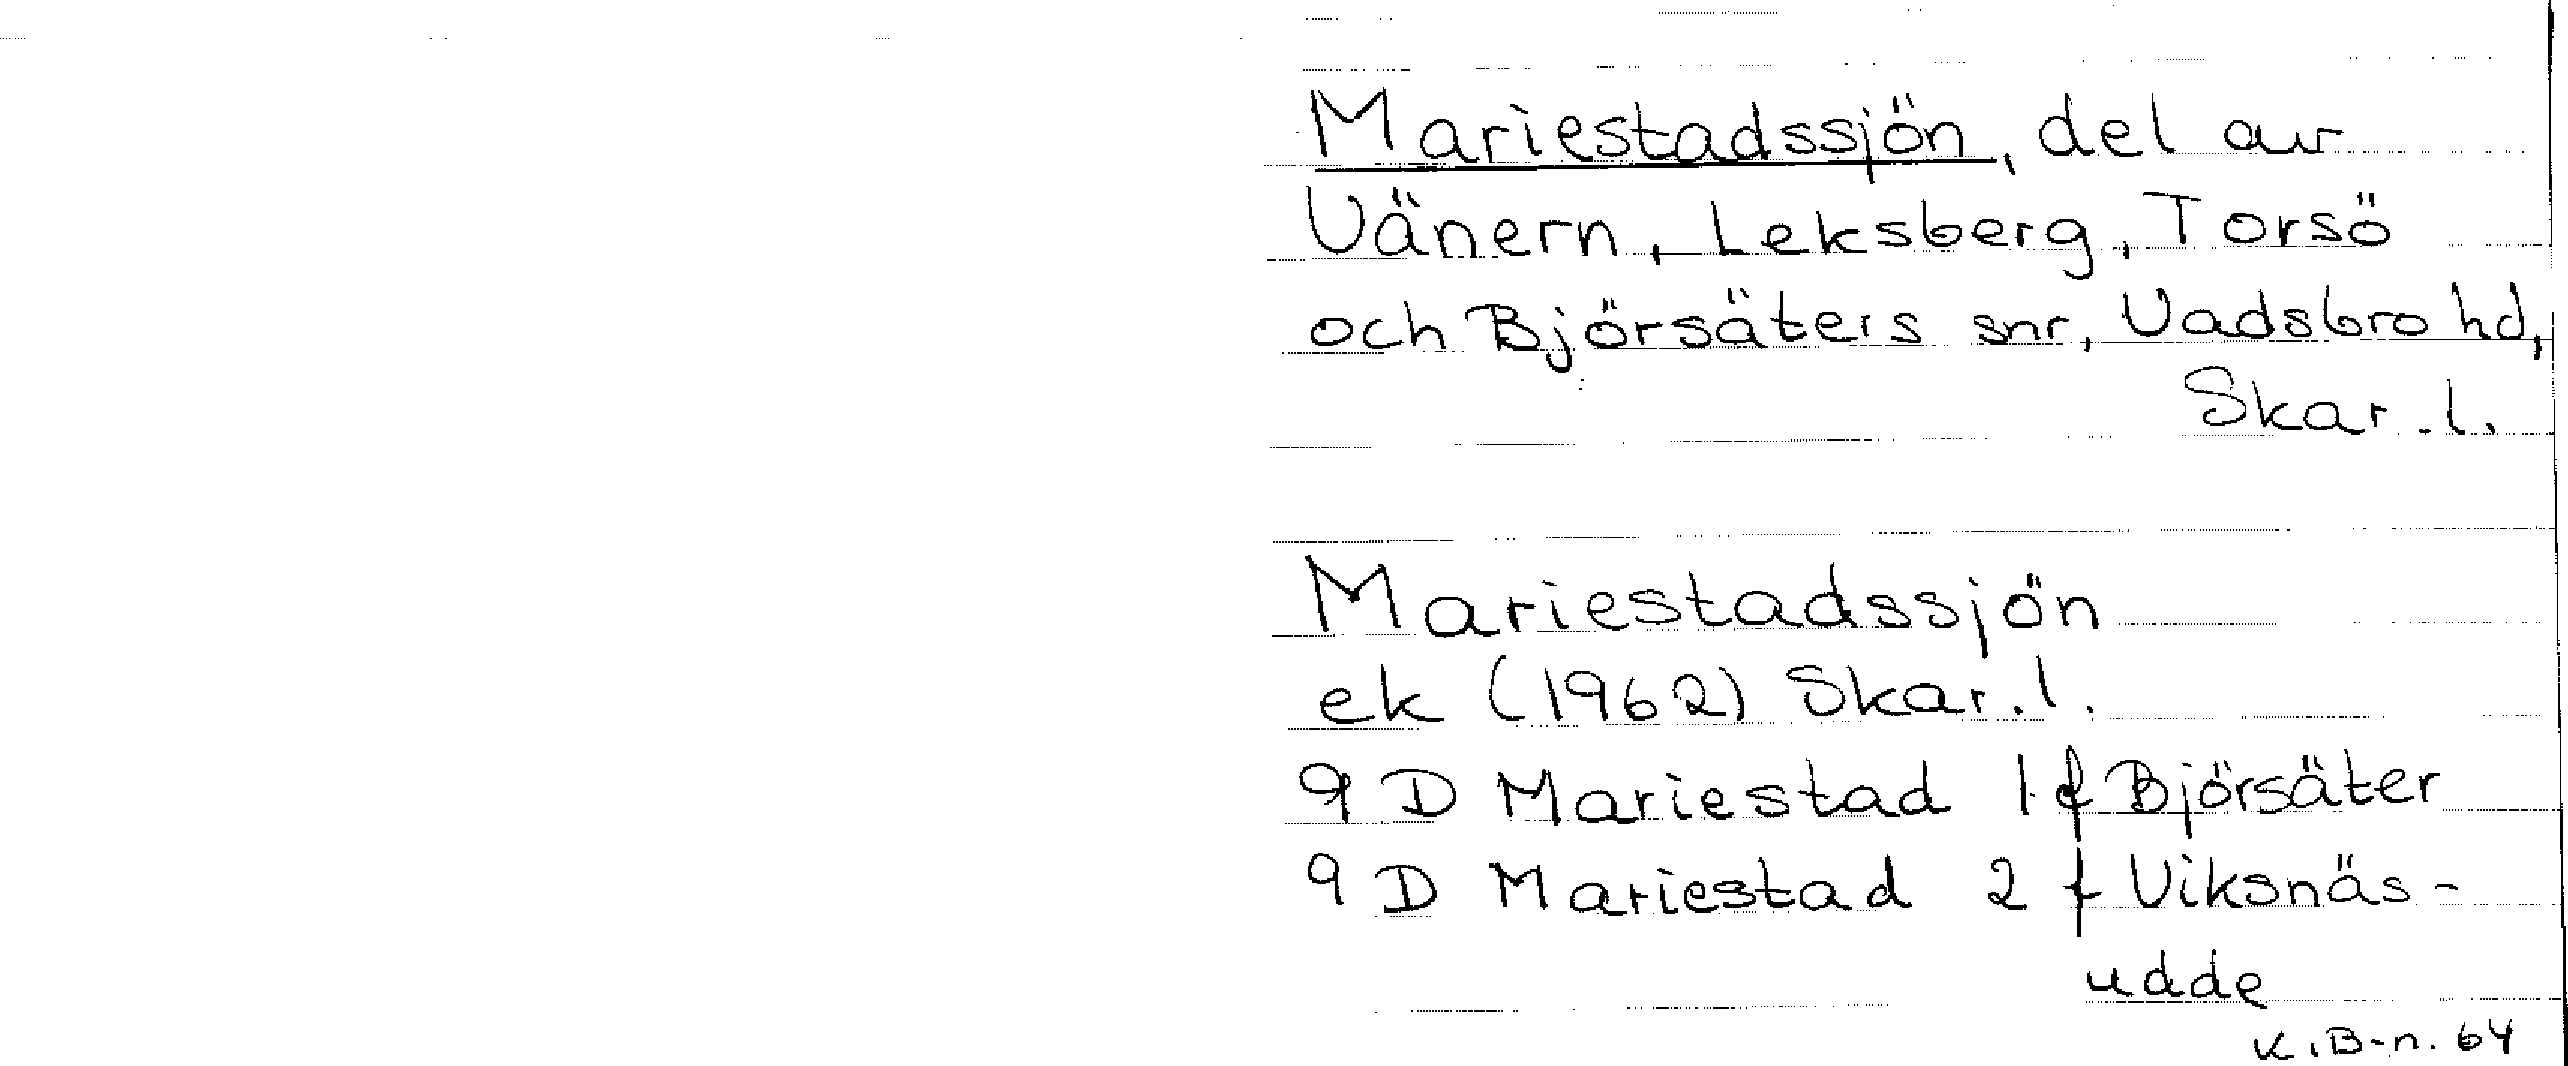 Mariestadssjön, del av
Vänern, Leksberg, Torsö
och Björsäters snr, Vadsbro hd,
Skar.l.
Mariestadssjön
ek (1962) Skar.l.
9 D Mariestad 1 f Björsäter
9 D Mariestad 2 f Viksnäs-
udde
K.B-n. 64